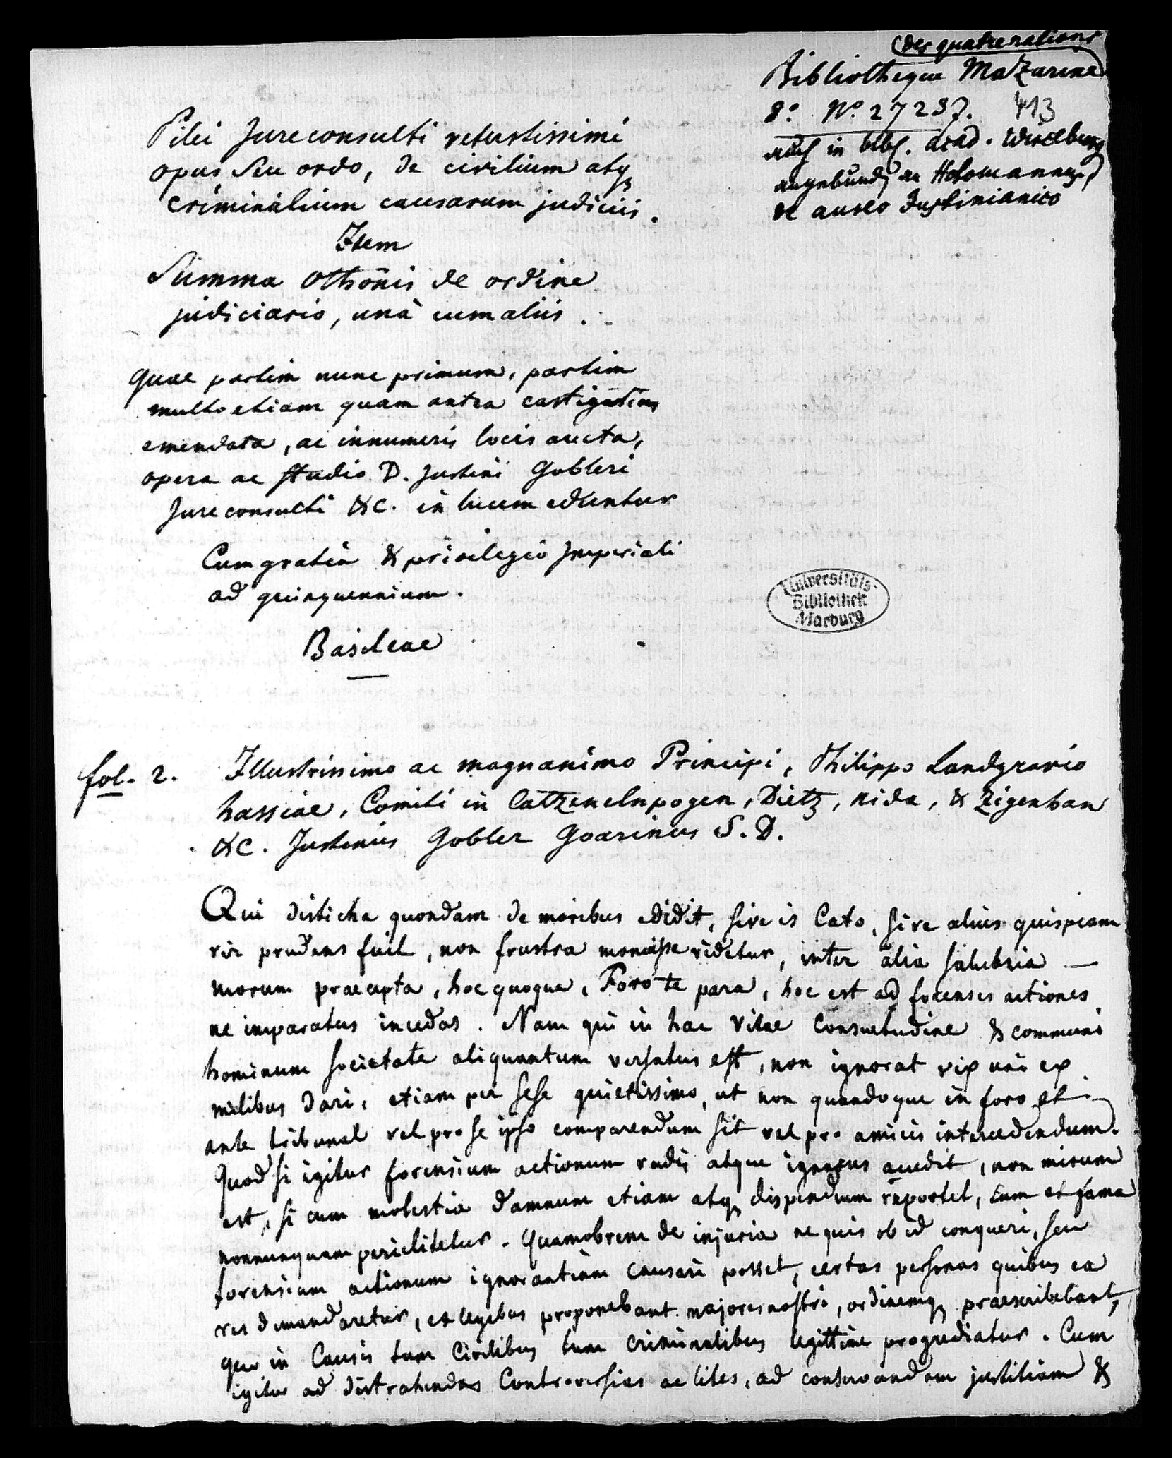 (des quatre nations
Bibliotheque Mazarine
8º. Nº. 27237. 413
auch in bibl. acad. Wirceburg
angebunden an Hotomannus
de aureo Justinianico
Pilei Jureconsulti vetustissimi
opus seu ordo, de civilium atq
criminalium causarum judiciis.
Item
Summa Othonis de ordine
judiciario, unà cum aliis.
Quae partim nunc primum, partim
multo etiam quam antea castigatius
emendata, ac innumeris locis aucta,
opera ac studio D. Justini Gobleri
Jureconsulti &c. in lucem eduntur
Cum gratia & privilegio Imperiali
ad quinquennium.
Basileae
Universitäts-
Bibliothek
Marburg
fol. 2. Illustrissimo ac magnanimo Principi, Philippo Landgravio
hassiae, Comiti in Catzenelnpogen, Dietz, nida, & Zigenhan
&c. Justinus Gobler Goarinus S. D.
Qui disticha quondam de moribus edidit, sive is Cato, sive alius quispiam
vir prudens fuit, non frustra monuisse videtur, inter alia salubria
morum praecepta, hoc quoque, Foro te para, hoc est ad forenses actiones
ne imparatus incedas. Nam qui in hac vitae consuetudine & communi
hominum societate aliquantum versatus est, non ignorat vix uni ex
milibus dari, etiam per sese quietissimo, ut non quandoque in foro et
ante tribunal vel pro se ipso comparendum sit vel pro amicis intercedendum.
Quod si igitur forensium actionum rudis atque ignarus accedit, non mirum
est, si cum molestia damnum etiam atq dispendium reportet, tum et fama
nonnunquam periclitetur. Quamobrem de injuria ne quis ob id conqueri, seu
forensium actionum ignorantiam causari posset, certas personas quibus ea
res demandaretur, ex legibus proponebant majores nostri, ordinemq praescribebant,
quo in Causis tam Civilibus tum criminalibus legittime progrediatur. Cum
igitur ad distrahendas Controversias ac lites, ad conservandam justitiam &